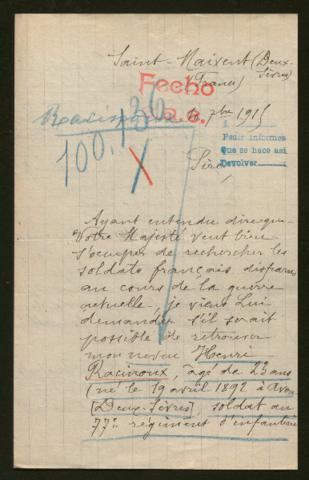 Saint-Maixent (Deux-
Sèvres)
(France)
Fecho
R. e.
7bre 1915
100.136
X
A
Pedir informes
Que se hace así
Devolver
Sire,
Ayant entendu dire que
Votre Majesté veut bien
s'occuper de rechercher les
soldats français disparus
au cours de la guerre
actuelle, je viens Lui
demander s'il serait
possible de retrouver
mon neveu Henri
Racinoux, âgé de 23 ans
(né le 19 avril 1892 à
(Deux-Sèvres), soldat au
77e régiment d'infanterie